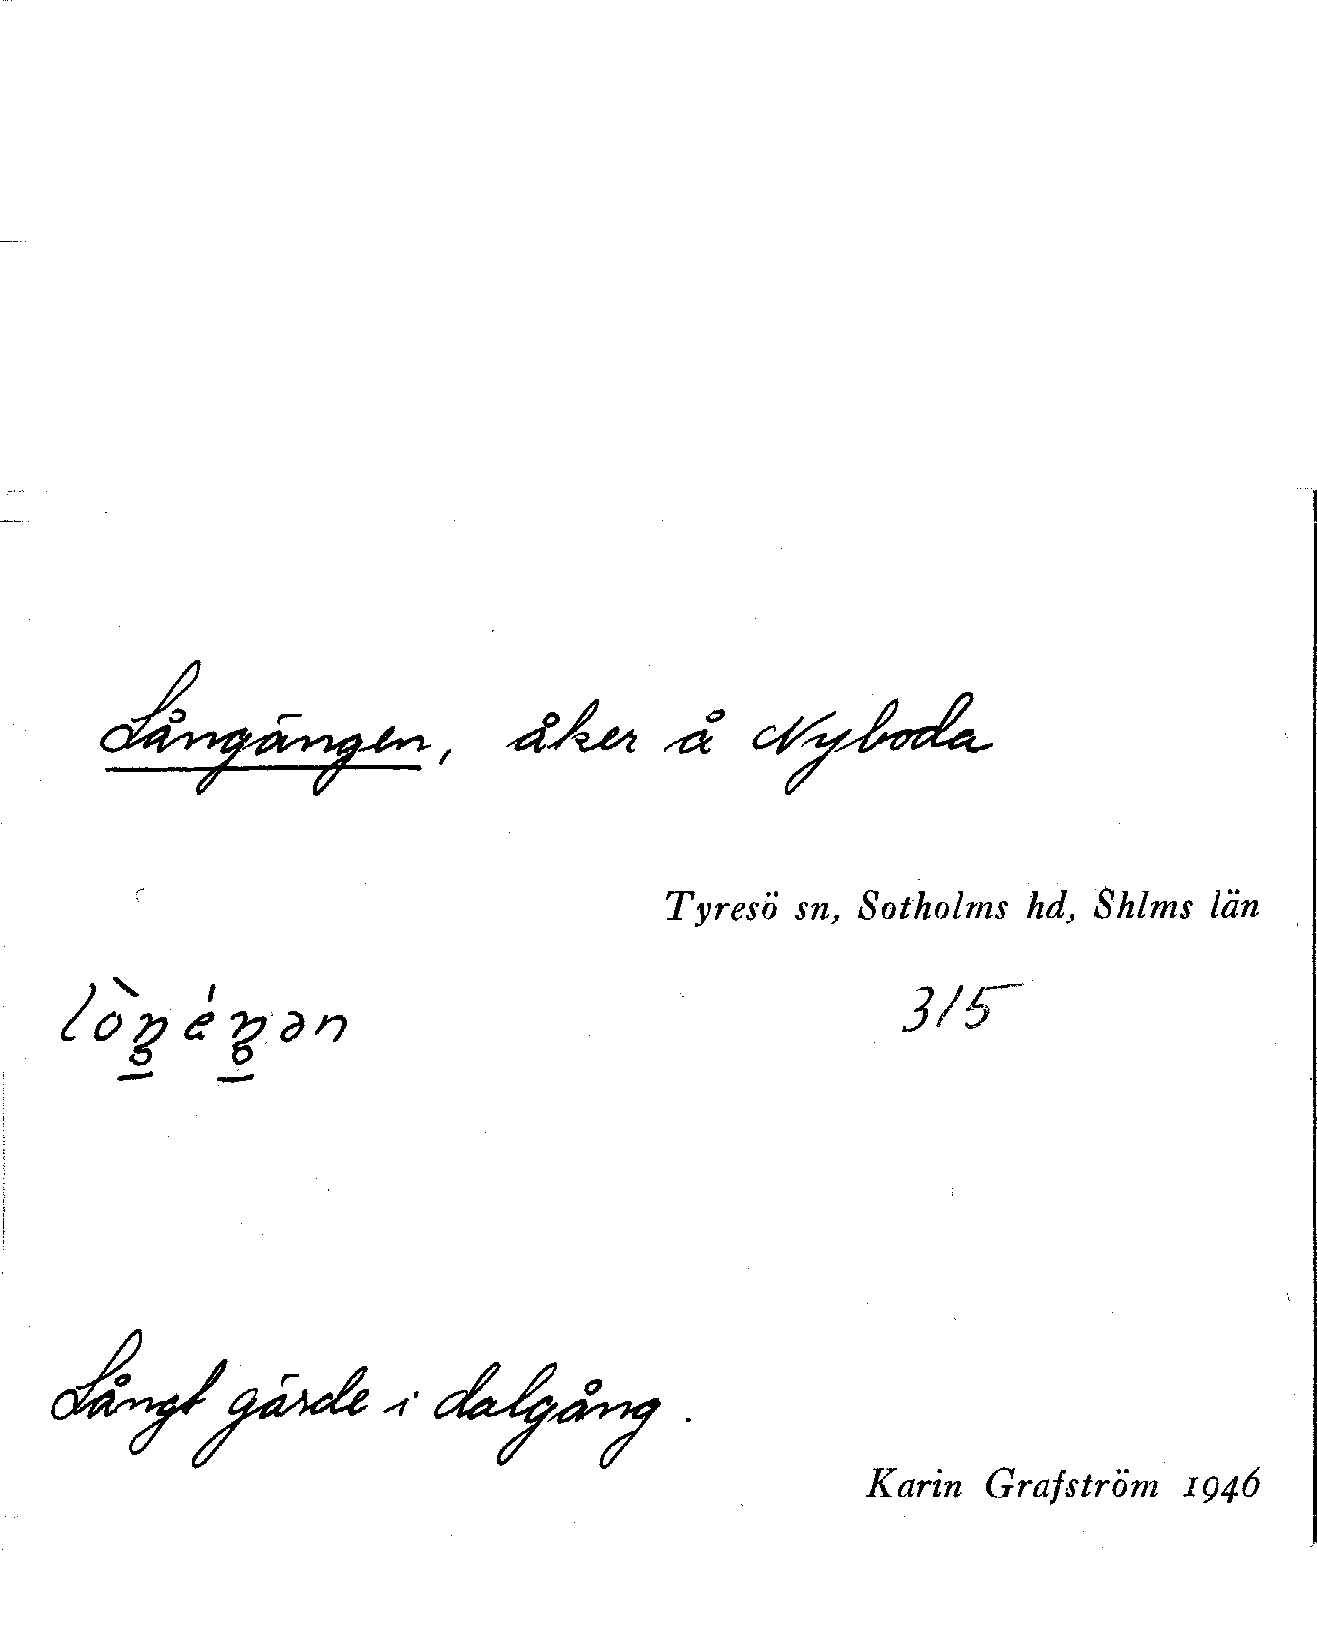 Långängen, åker å Nyboda
Tyresö sn, Sotholms hd, Shlms län
315
Långt gärde i dalgång.
Karin Grafström 1946